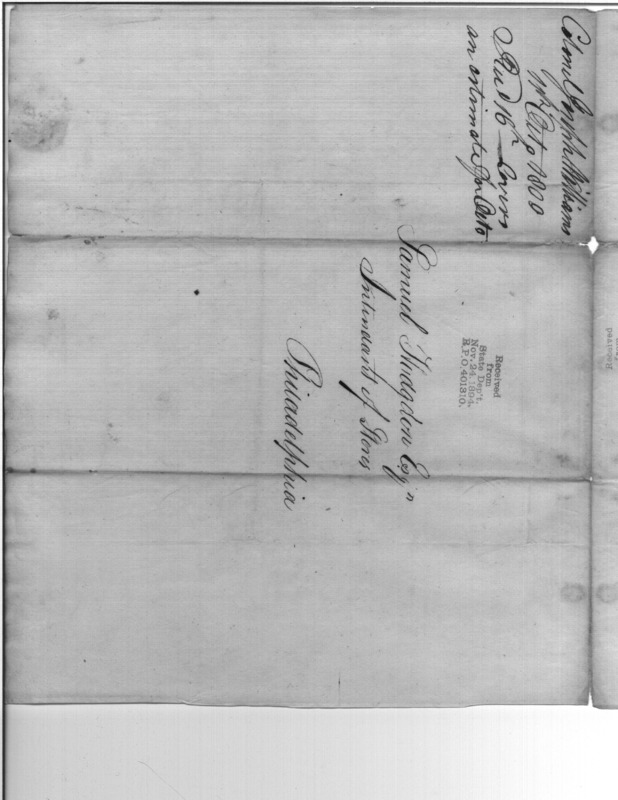 Colonel Joseph Williams
7th Octo 1800
Rec'd 16th Covers
an estimate for Octo
Samuel Hodgdon Esqr
Intendant of Stores
Philadelphia
Received
from
State Dep't.
Nov. 24, 1894.
R.P.O. 401310.
Received